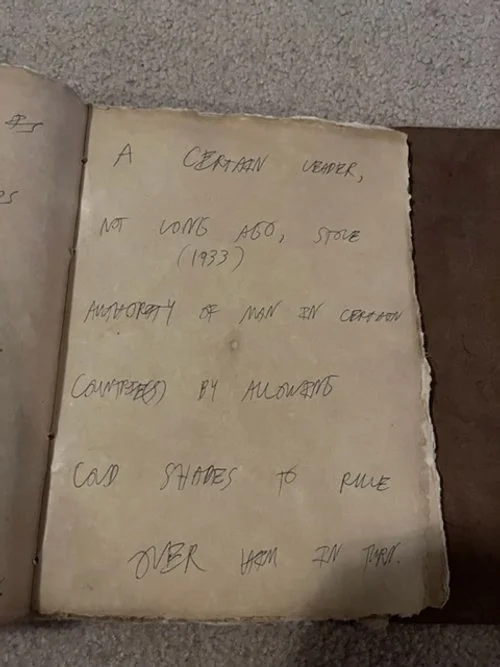 A CERTAIN LEADER,
NOT LONG AGO, STOLE
(1933)
AUTHORITY OF MAN IN CERTAIN
COUNTRIE(S) BY ALLOWING
COLD SHADES TO RULE
OVER HIM IN TURN.